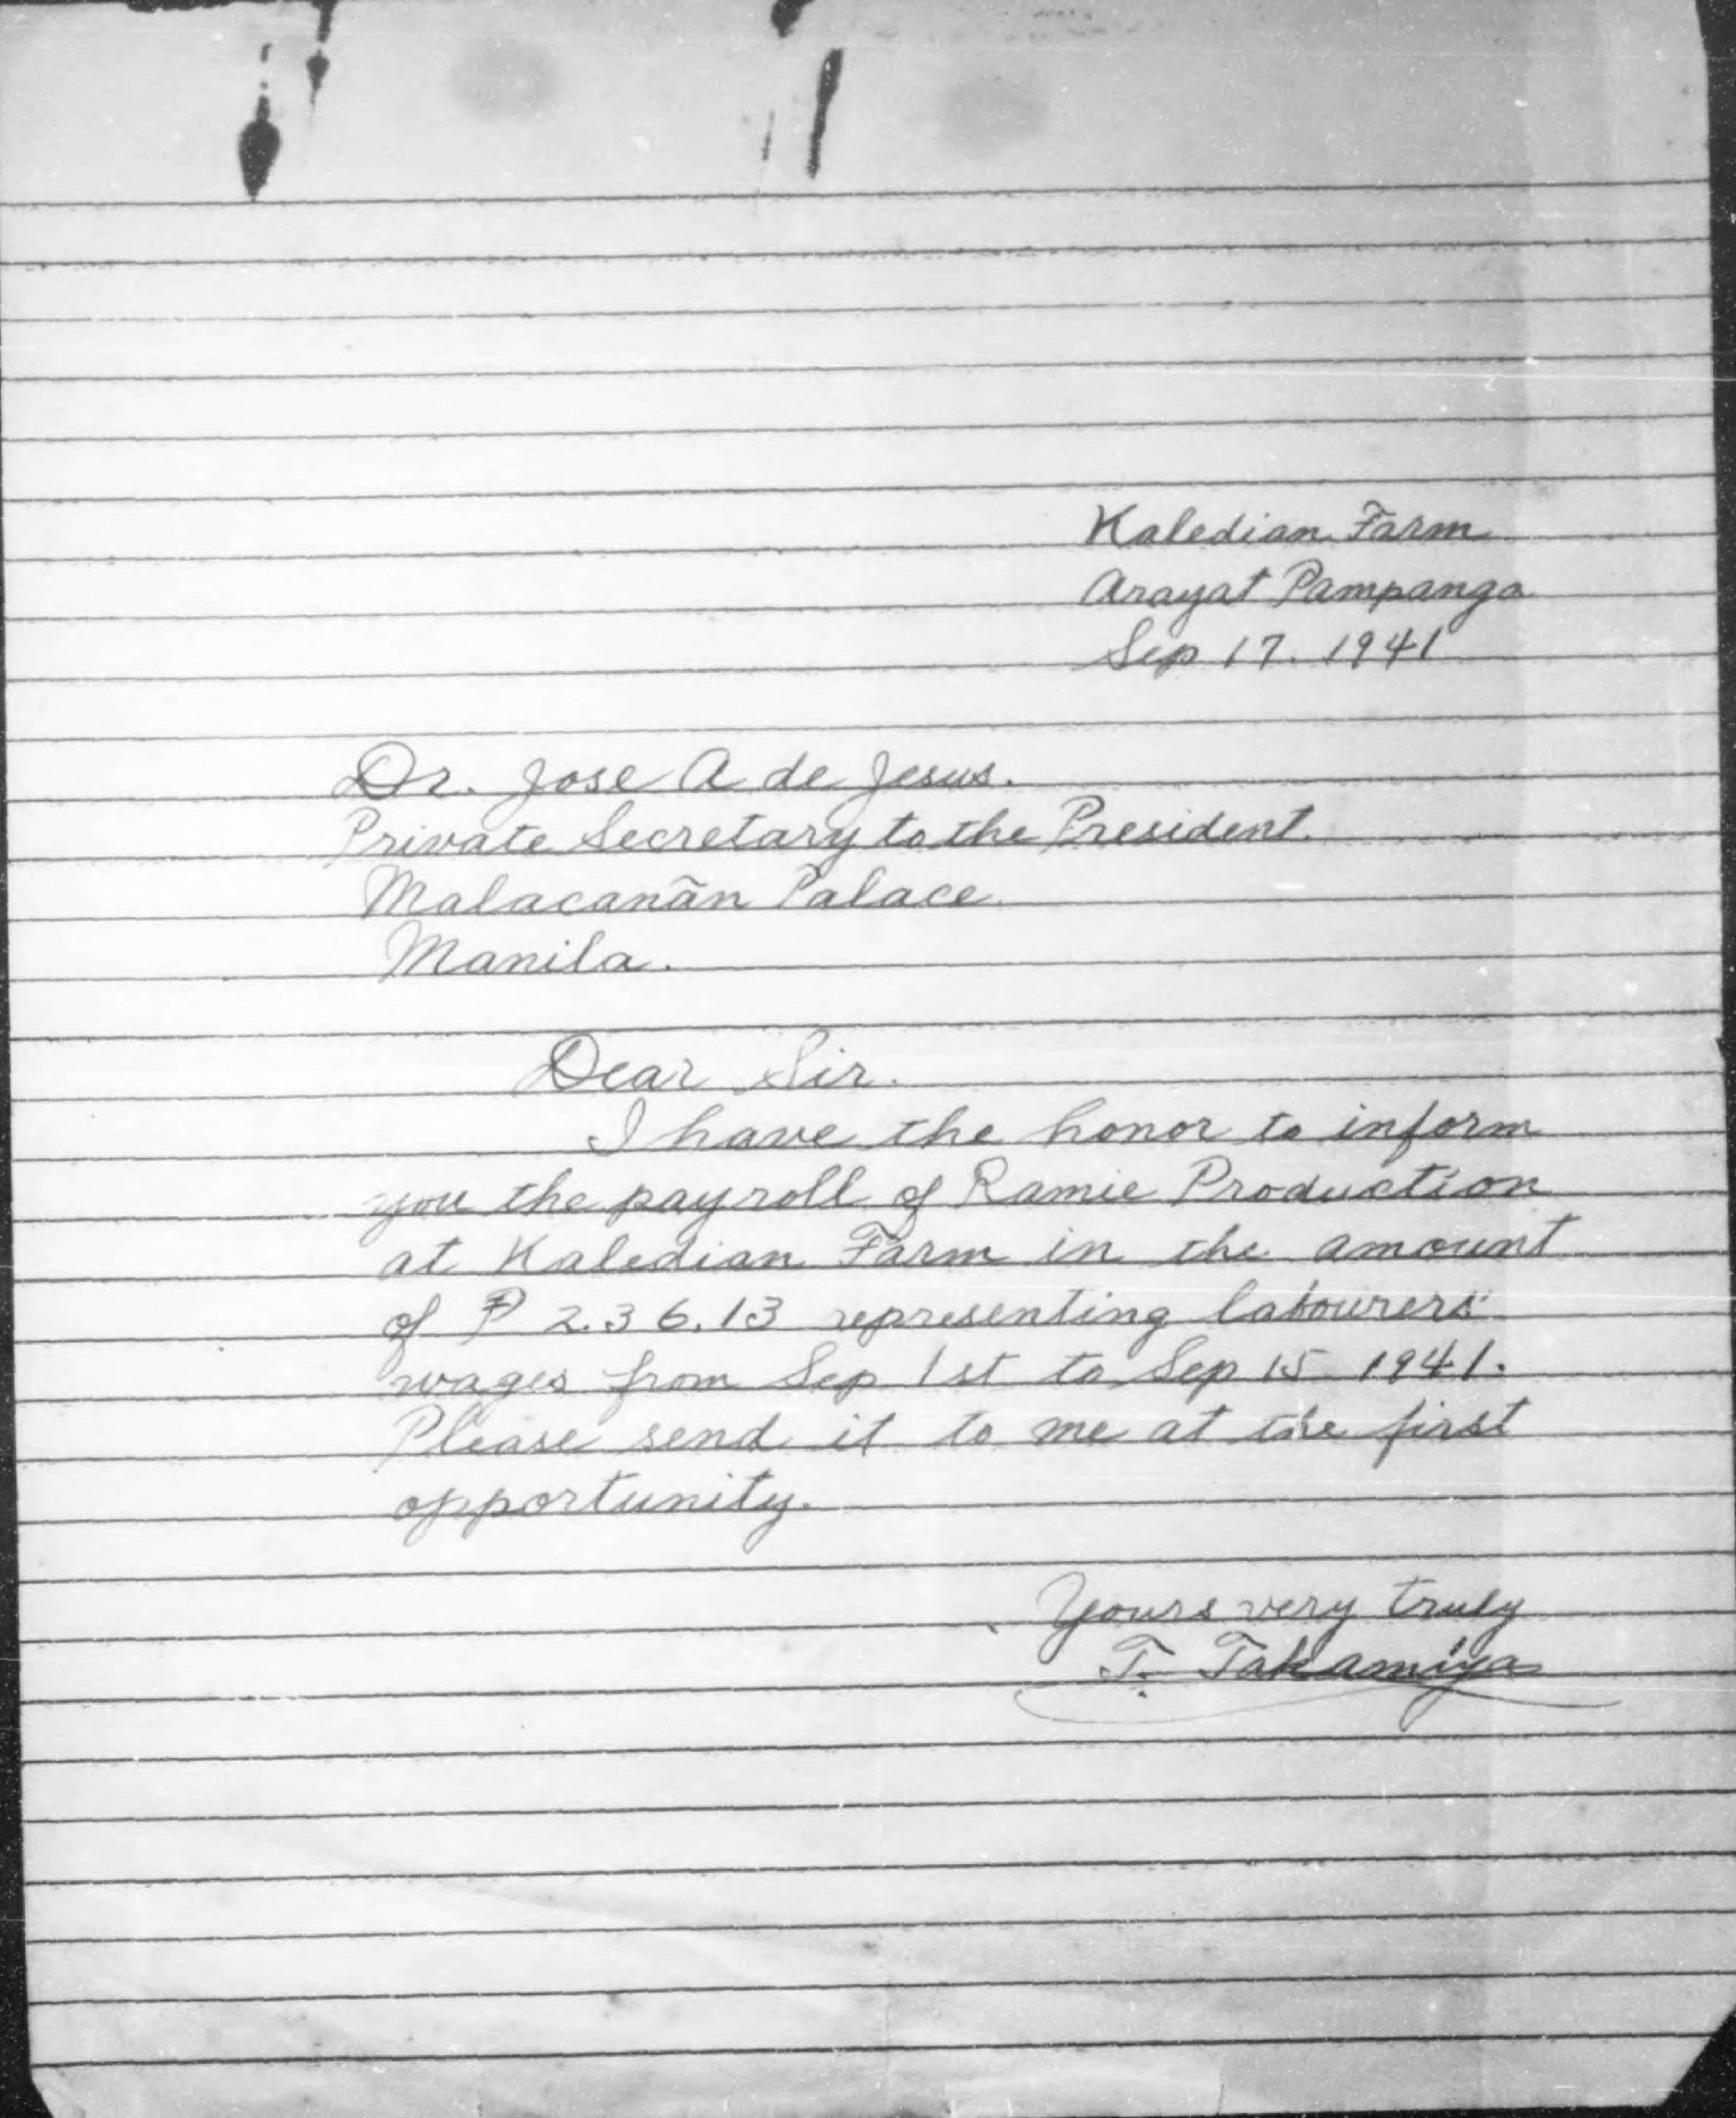 Kaledian Farm
Arayat Pampanga
Sep 17. 1941
Dr. Jose A de Jesus.
Private Secretary to the President.
Malacanãn Palace
Manila.
Dear Sir.
I have the honor to inform
you the payroll of Ramie Production
at Kaledian Farm in the amount
of ₱ 2.36.13 representing labourers'
wages from Sep 1st to Sep 15 1941.
Please send it to me at the first
opportunity.
Yours very truly
T. Takamiya